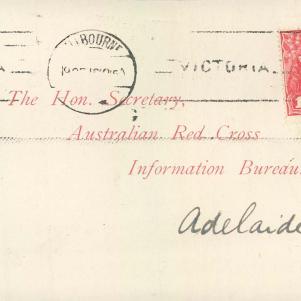 MELBOURNE
VICTORIA
The Hon. Secretary,
Australian Red Cross
Information Bureau
Adelaide